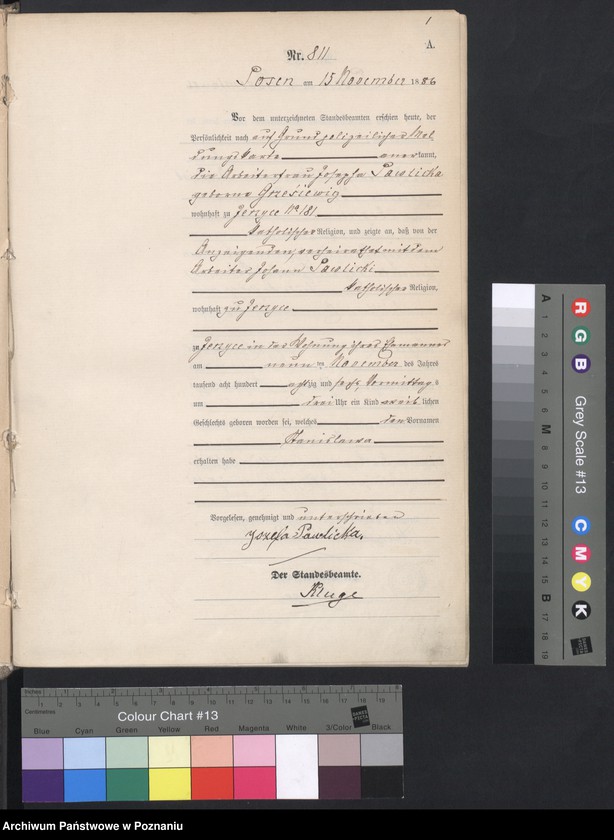 1
A.
Nr. 811
Posen am 15 November 1886
Vor dem unterzeichneten Standesbeamten erschien heute, der
Persönlichkeit nach auf Grund polizeilicher Mel
dungskarte anerkannt,
die Arbeiterfrau Josepha Pawlicka
geborne Grzesiewicz
wohnhaft zu Jerzyce No 181
katholischer Religion, und zeigte an, daß von der
Anzeigenden, verheirathet mit dem
Arbeiter Johann Pawlicki
katholischer Religion,
wohnhaft zu Jerzyce
zu Jerzyce in der Wohnung ihres Ehemannes
am neunten November des Jahres
tausend acht hundert achtzig und sechs Vormittags
um drei Uhr ein Kind weiblichen
Geschlechts geboren worden sei, welches den Vornamen
Stanislawa
erhalten habe
Vorgelesen, genehmigt und unterschrieben
Jozefa Pawlicka.
Der Standesbeamte.
Kluge
A 1 2 3 4 5 6 M 8 9 10 11 12 13 14 15 B 17 18 19
R G B Grey Scale #13 C M Y K
Inches 1 2 3 4 5 6 7 8
Centimetres 1 2 3 4 5 6 7 8 9 10 11 12 13 14 15 16 17 18 19
Colour Chart #13
Blue Cyan Green Yellow Red Magenta White 3/Color Black
Archiwum Państwowe w Poznaniu